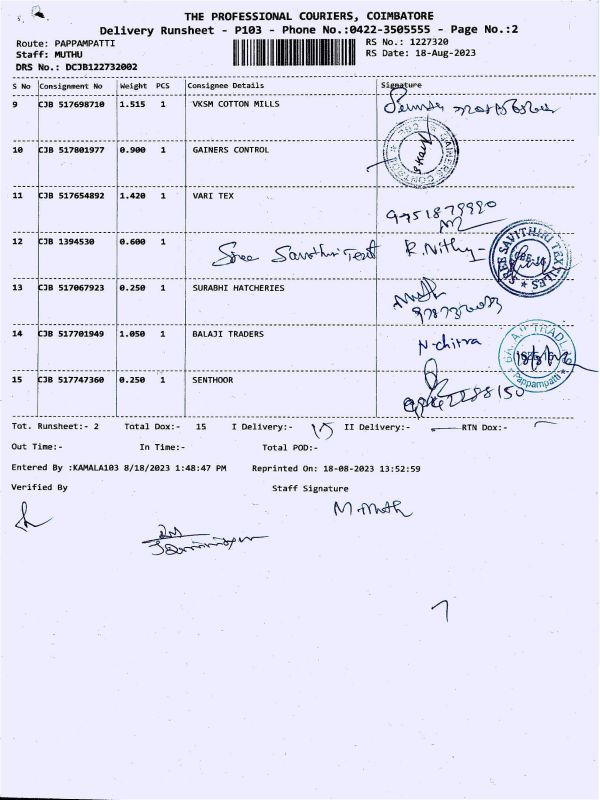 THE PROFESSIONAL COURIERS, COIMBATORE
Delivery Runsheet - P103 - Phone No.:0422-3505555 - Page No.:2
Route: PAPPAMPATTI RS No.: 1227320
Staff: MUTHU RS Date: 18-Aug-2023
DRS No.: DCJB122732002
S No Consignment No Weight PCS Consignee Details Signature
9 CJB 517698710 1.515 1 VKSM COTTON MILLS
10 CJB 517801977 0.900 1 GAINERS CONTROL
11 CJB 517654892 1.420 1 VARI TEX
9751879990
12 CJB 1394530 0.600 1 Sree Savithri Text R. Nithy
SREE SAVITHRI TEXTILES
13 CJB 517067923 0.250 1 SURABHI HATCHERIES
14 CJB 517701949 1.050 1 BALAJI TRADERS N-chitra
Pappampatti
15 CJB 517747360 0.250 1 SENTHOOR
Tot. Runsheet:- 2 Total Dox:- 15 I Delivery:- 15 II Delivery:- RTN Dox:-
Out Time:- In Time:- Total POD:-
Entered By :KAMALA103 8/18/2023 1:48:47 PM Reprinted On: 18-08-2023 13:52:59
Verified By Staff Signature
M-Muth